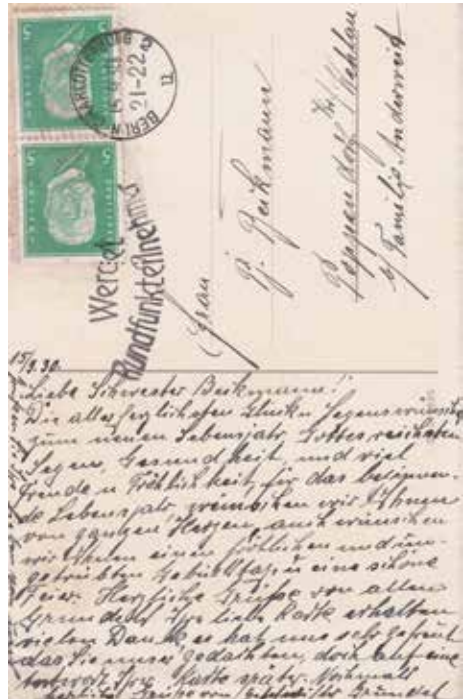 BERLIN-CHARLOTTENBURG
15.9.30
21-22
Werdet
Rundfunkteilnehmer
Frau
Beikmann
Poppendorf Kr. Wehlau
b/ Familie
15/9.30.
Liebe Schwester Beikmann!
Die allerherzlichsten Glück u. Segenswünsche
zum neuen Lebensjahr, Gottes reichsten
Segen, Gesundheit und viel
Freude u Fröhlichkeit, für das beginnen-
de Lebensjahr wünschen wir Ihnen
von ganzen Herzen, auch wünschen
wir Ihnen einen fröhlichen und un-
getrübten Geburtstag, u eine schöne
Feier. Herzliche Grüße von allen
Ihre liebe Karte erhalten
vielen Dank es hat uns sehr gefreut
das Sie unser gedachten, doch auf eine
Antwort Ihre Karte später. Nochmals
herzliche Grüße von